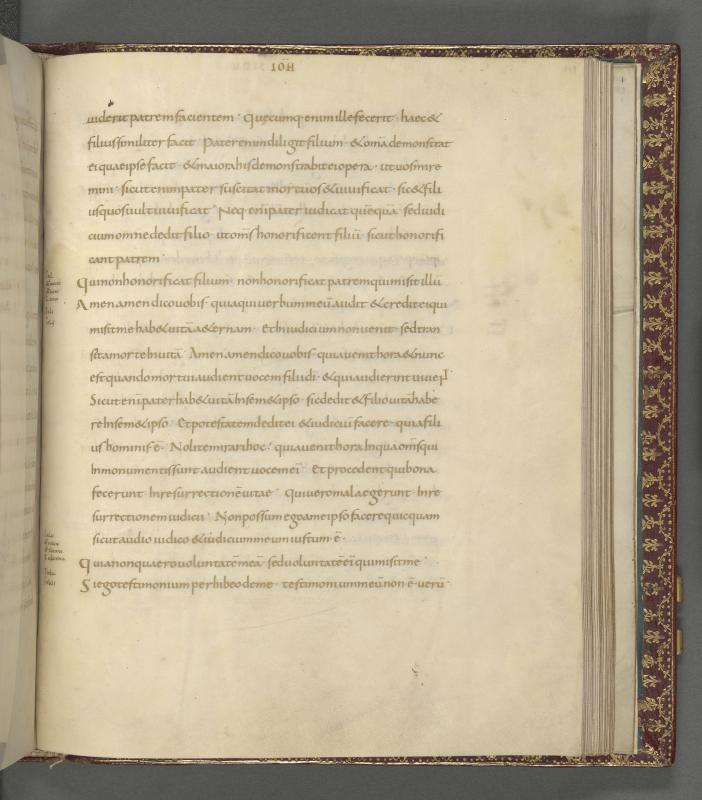 IOH
uiderit patrem facientem · Quecumq· enim ille fecerit · haec &
filius similiter facit Pater enim diligit filium · & omĩa demonstrat
ei quae ipse facit · & maiora his demonstrabit ei opera · ut uos mire
mini · sicut enim pater suscitat mortuos & uiuificat · sic & fili
us quos uult uiuificat · Neq· enĩ pater iudicat quẽquã · sed iudi
cium omne dedit filio · ut oms̃ honorificent filiũ sicut honorifi
cant patrem
Qui non honorificat filium · non honorificat patrem qui misit illũ
Amen amen dico uobis · quia qui uerbum meũ audit & credit ei qui
misit me hab& uitã a&ernam · Et in iudicium non uenit · sed tran
siit a morte in uitã Amen amen dico uobis · quia uenit hora & nunc
est quando mortui audient uocem filii di · & qui audierint uiuent
Sicut enĩ pater hab& uitã In sem&ipso · sic dedit & filio uitã habe
re In sem&ipso Et potestatem dedit ei & iudiciũ facere · quia fili
us hominis ẽ · Nolite mirari hoc · quia uenit hora In qua oms̃ qui
In monumentis sunt audient uocem eĩ Et procedent qui bona
fecerunt · In resurrectionẽ uitae · Qui uero mala egerunt · In re
surrectionem iudicii · Non possum ego a me ipso facere quicquam
sicut audio iudico & iudicium meum iustum ·ẽ·
Quia non quaero uoluntatẽ meã sed uoluntatẽ eĩ qui misit me
Si ego testimonium perhibeo de me · testimonium meũ non ·ẽ· uerũ